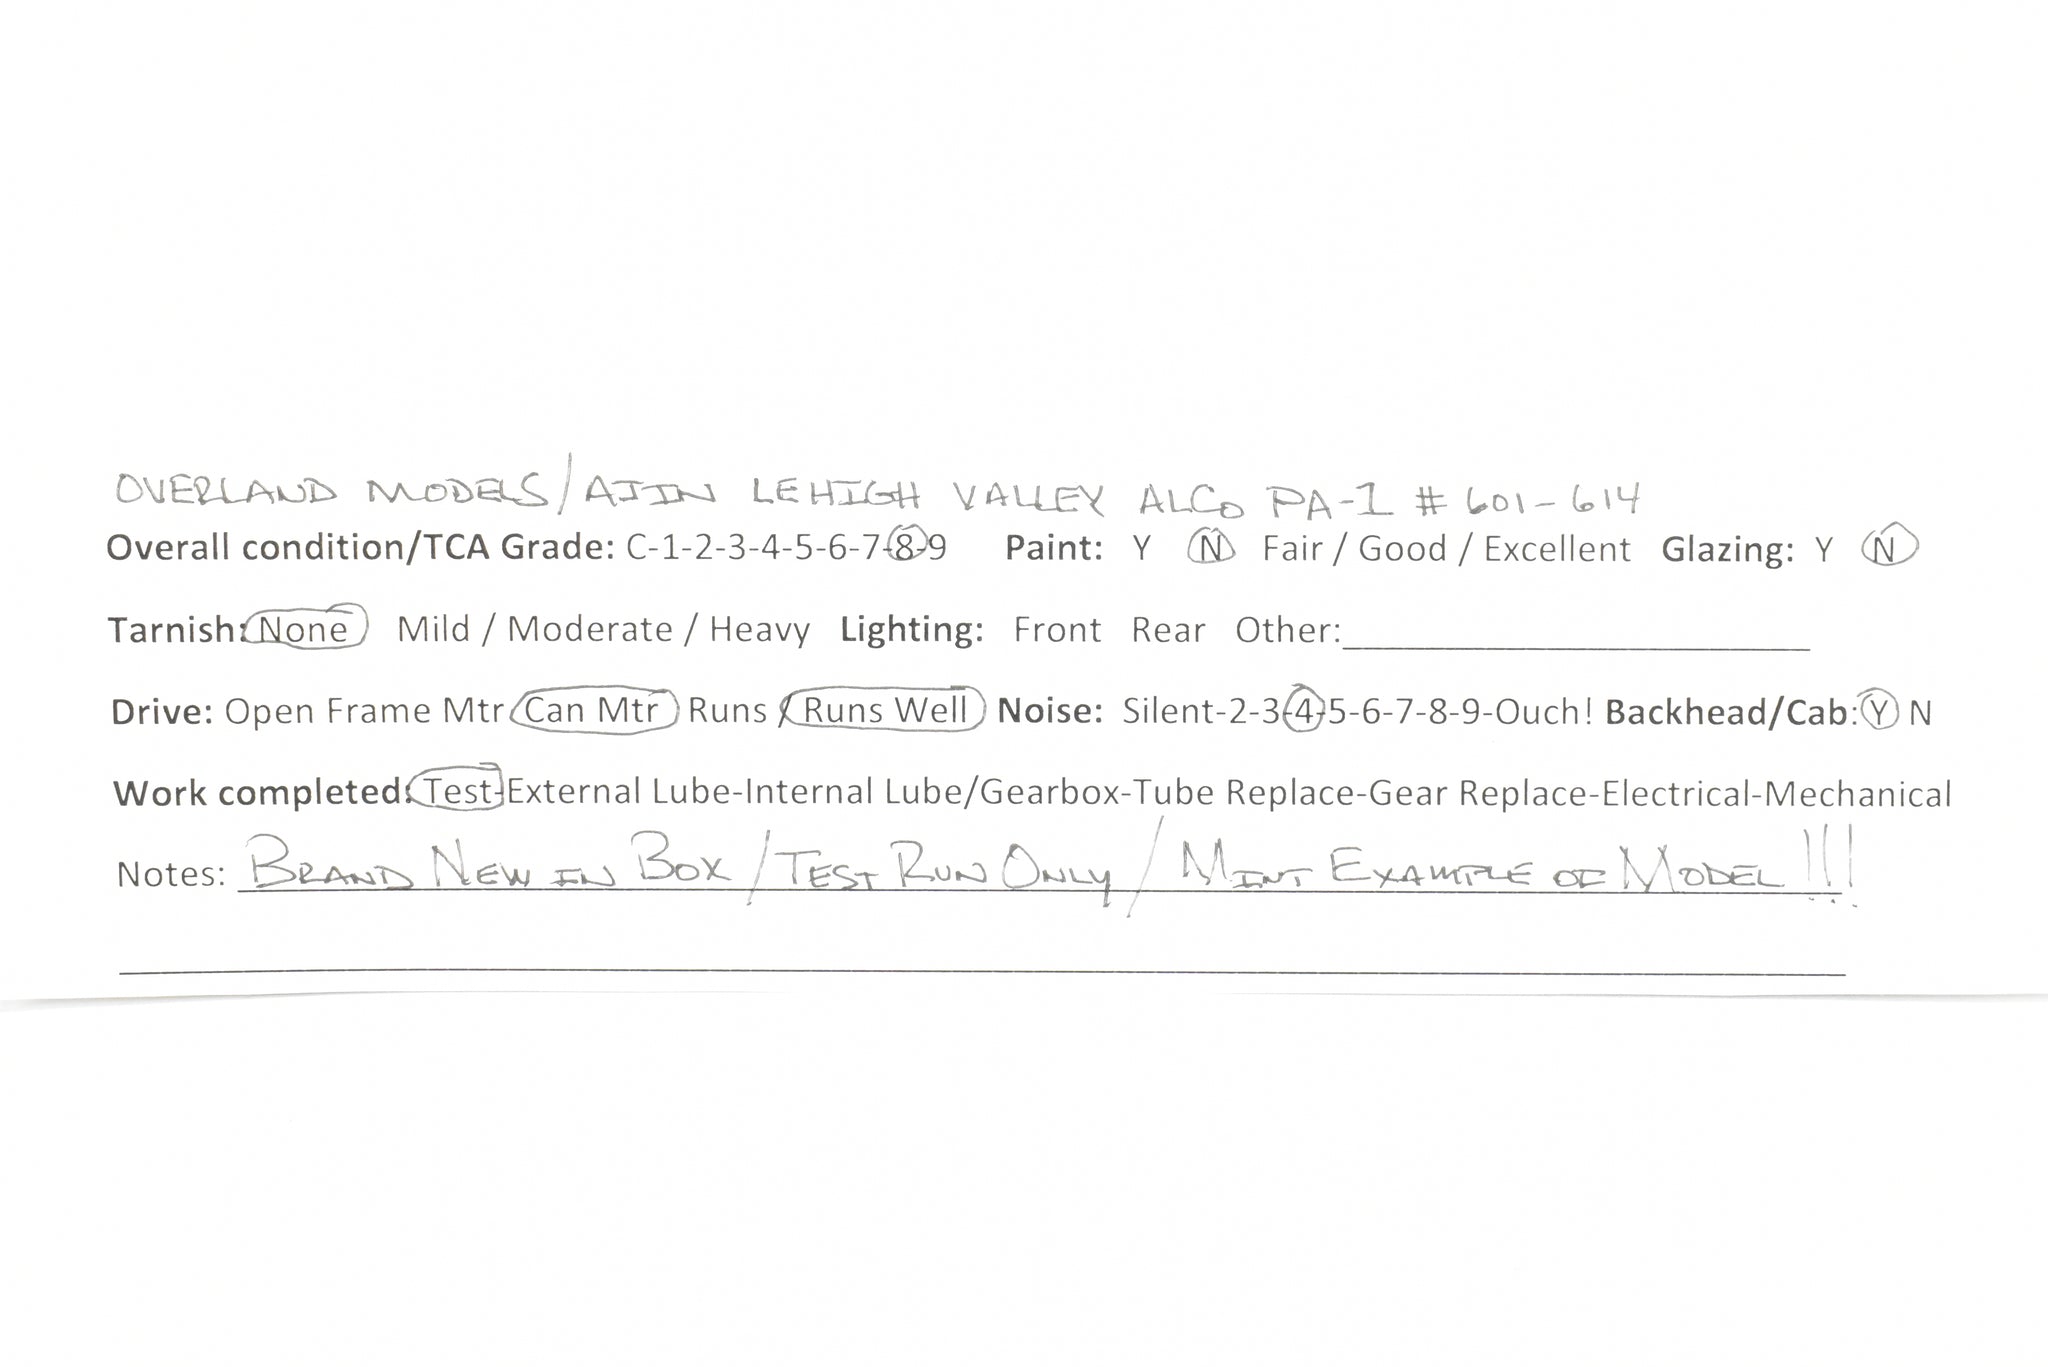 OVERLAND MODELS/AJIN LEHIGH VALLEY ALCO PA-1 # 601-614
Overall condition/TCA Grade: C-1-2-3-4-5-6-7-8-9 Paint: Y N Fair / Good / Excellent Glazing: Y N
Tarnish: None Mild / Moderate / Heavy Lighting: Front Rear Other:
Drive: Open Frame Mtr Can Mtr Runs / Runs Well Noise: Silent-2-3-4-5-6-7-8-9-Ouch! Backhead/Cab: Y N
Work completed: Test-External Lube-Internal Lube/Gearbox-Tube Replace-Gear Replace-Electrical-Mechanical
Notes: BRAND NEW IN BOX / TEST RUN ONLY / MINT EXAMPLE OF MODEL!!!